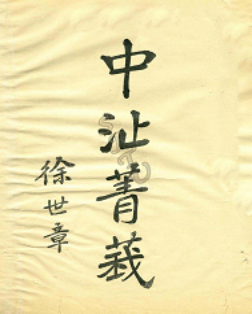 中沚菁莪
徐世章